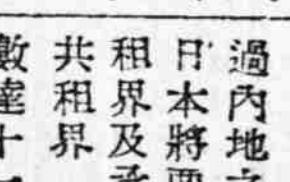 過內地之
日本將要
租界及承
共租界
數達十